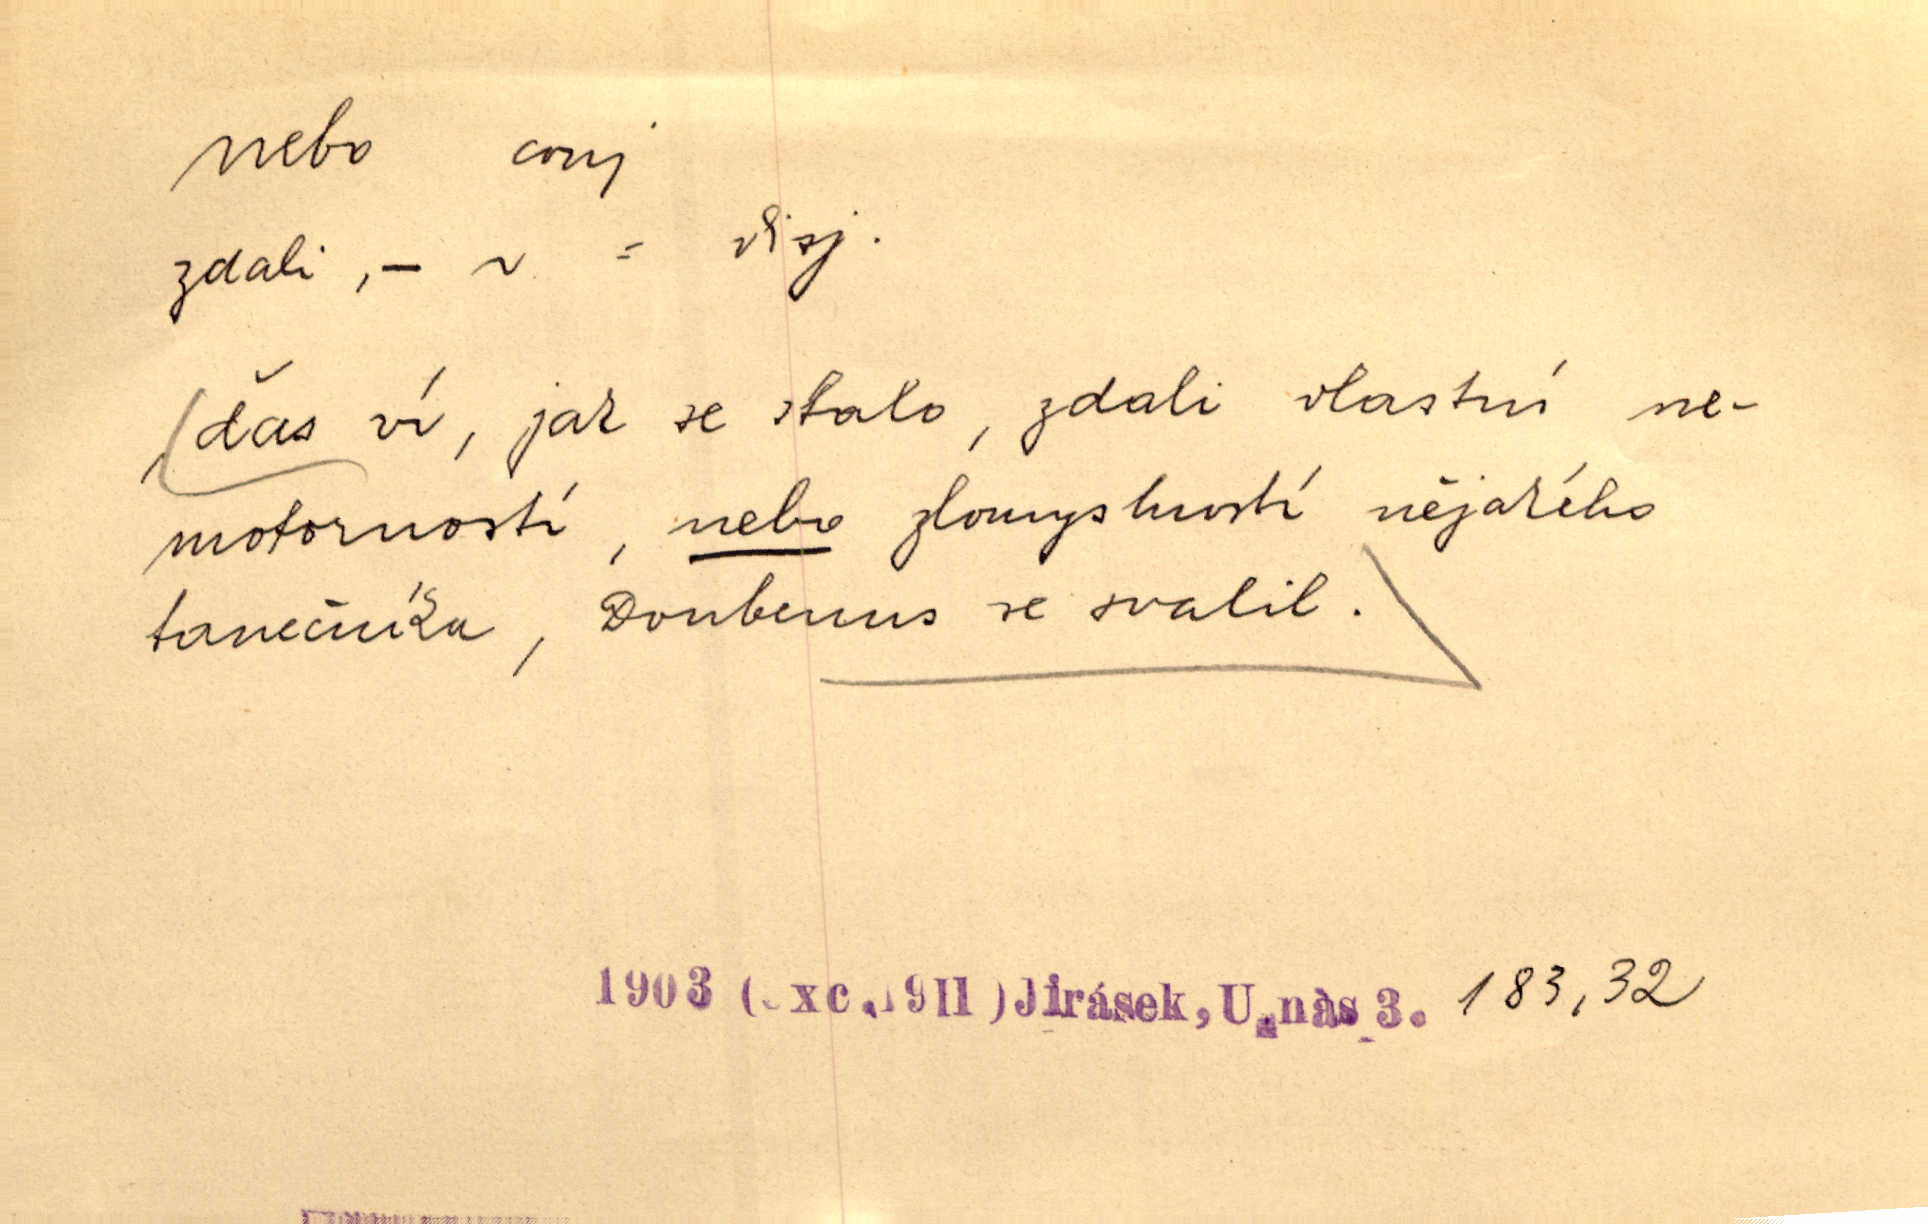 nebo conj
zdali, – ~ = větsj.
ďas ví, jak se stalo, zdali vlastní ne-
motorností, nebo zlomyslností nějakého
tanečníka, Doubenus se svalil.
1903 ( xc. 1911) Jirásek, U nás 3. 183,32